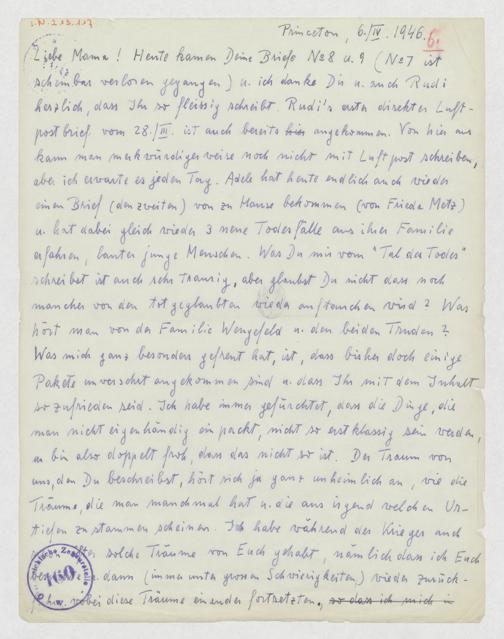 Princeton, 6./IV. 1946.
6.
Liebe Mama! Heute kamen Deine Briefe No 8 u. 9 (No 7 ist
scheinbar verloren gegangen) u. ich danke Dir u. auch Rudi
herzlich, dass Ihr so fleissig schreibt. Rudi's erster direkter Luft-
postbrief vom 28./III. ist auch bereits hier angekommen. Von hier aus
kann man merkwürdigerweise noch nicht mit Luftpost schreiben,
aber ich erwarte es jeden Tag. Adele hat heute endlich auch wieder
einen Brief (den zweiten) von zu Hause bekommen (von Frieda Metz)
u. hat dabei gleich wieder 3 neue Todesfälle aus ihrer Familie
erfahren, lauter junge Menschen. Was Du mir vom "Tal des Todes"
schreibst ist auch sehr traurig, aber glaubst Du nicht dass noch
mancher von den totgeglaubten wieder auftauchen wird? Was
hört man von der Familie Wengefeld u. den beiden Truden?
Was mich ganz besonders gefreut hat, ist, dass bisher doch einige
Pakete unversehrt angekommen sind u. dass Ihr mit dem Inhalt
so zufrieden seid. Ich habe immer gefürchtet, dass die Dinge, die
man nicht eigenhändig einpackt, nicht so erstklassig sein werden,
u. bin also doppelt froh, dass das nicht so ist. Der Traum von
uns, den Du beschreibst, hört sich ja ganz unheimlich an, wie die
Träume, die man manchmal hat u. die aus irgend welchen Ur-
tiefen zu stammen scheinen. Ich habe während des Krieges auch
solche Träume von Euch gehabt, nämlich dass ich Euch
u. dann (immer unter grossen Schwierigkeiten) wieder zurück-
wobei diese Träume einander fortsetzten, so dass ich mich in
160